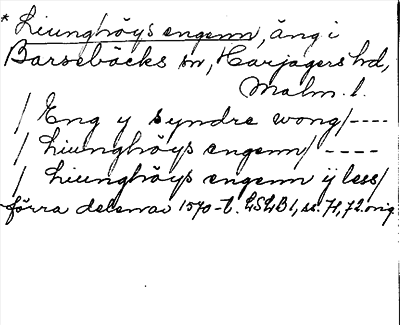 * Liunghöys engenn, äng i
Barsebäcks sn, Harjagers hd,
Malm. l.
/ Eng y syndre wong/----
/ Liunghöys engenn/ ----
/ Liunghöys engenn ÿ less/
förra delen av 1570-t. LSLB 1, ss. 71, 72. orig.